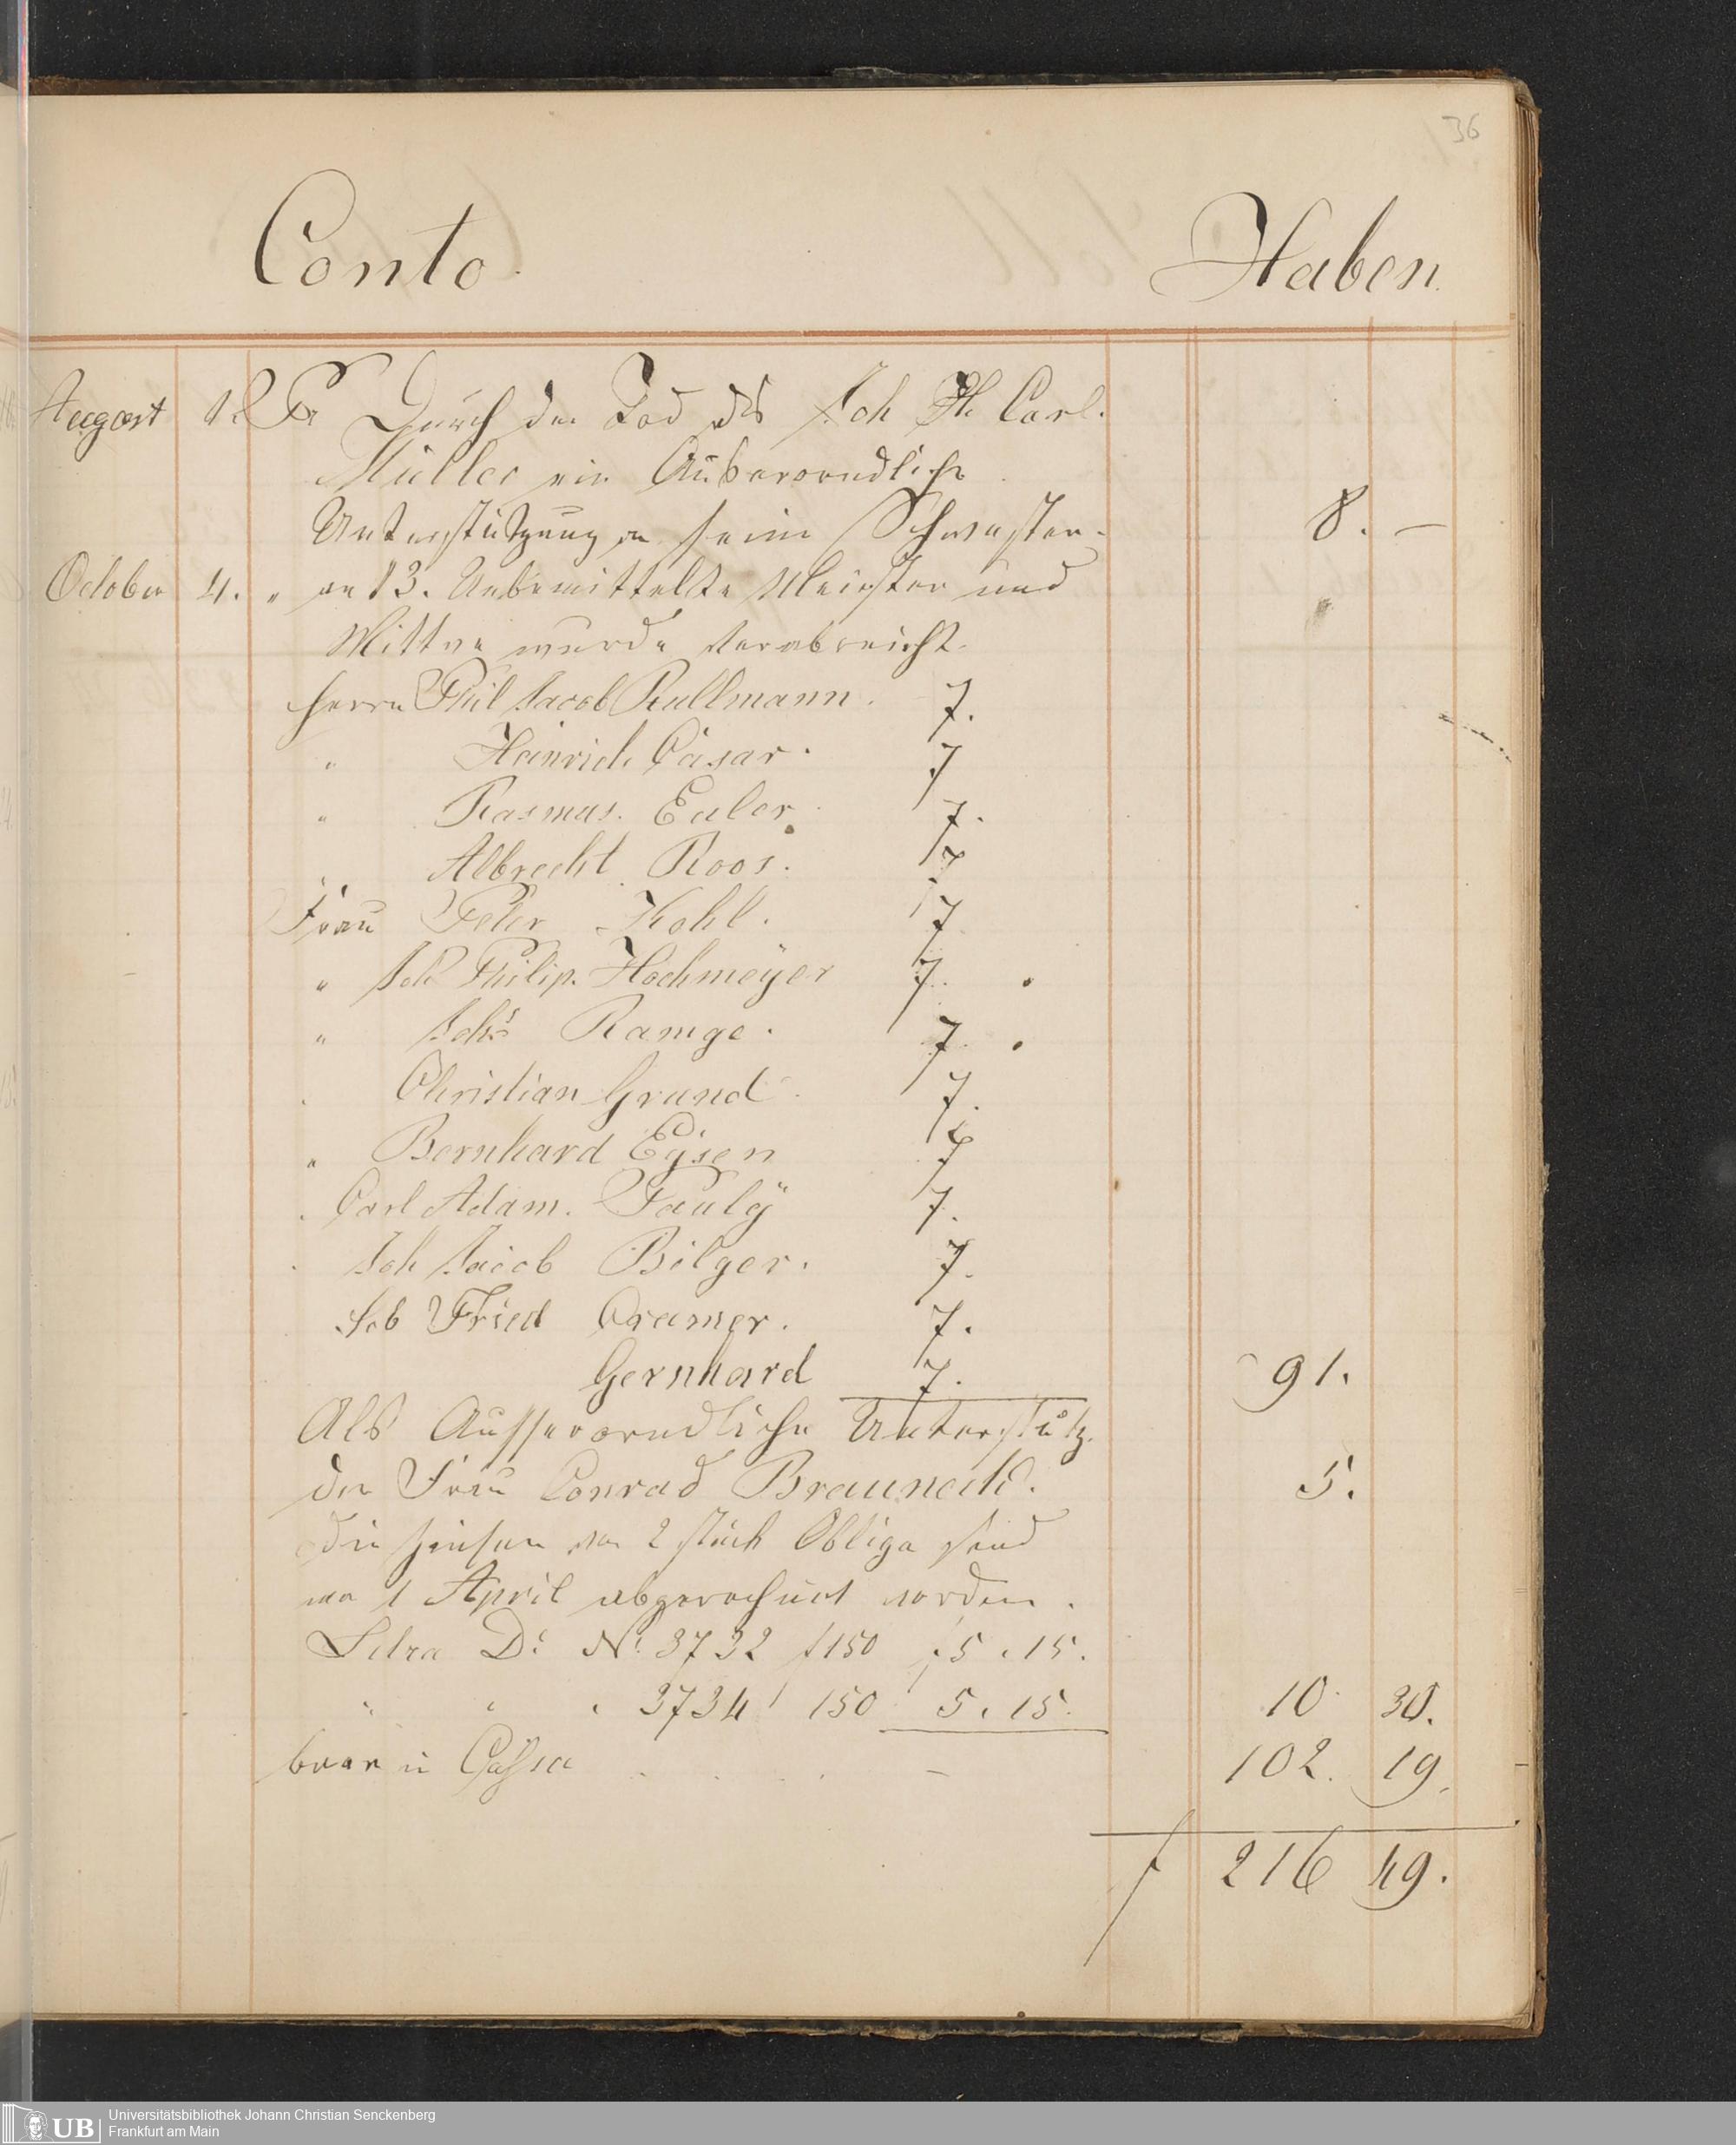 36
Conto. Haben.
August 12 Pr Durch den Tod des Joh Ph Carl.
Müller ein Außerorndliche
Unterstützung an seine Schwester. 8. —
October 4. " an 13. Unbemittelte Meister und
Wittwe wurde verabreicht.
Herrn Phil Jacob Rullmann. 7.
" Heinrich Cäsar. 7
" Rasmus. Euler. 7.
" Albrecht Roos. 7
Frau Peter Kohl. 7
" Joh Philip. Hochmeÿer 7.
" Johs Ramge. 7.
" Christian Grund 7.
" Bernhard Eÿsen 7
" Carl Adam. Paulÿ 7.
" Joh Jacob Bilger. 7.
Job Fried Cramer. 7.
Gernhard 7. 91.
Als Ausserorndliche Unterstütz.
der Frau Conrad Brauneck. 5.
Die Zinsen von 2 stück Obliga sind
1 April abgerechnet worden.
Litra D: No 3732 f 150 f 5. 15.
" " " 3734 150 5. 15. 10 30.
baar in Cassa . . . — 102. 19.
f 216 49.
UB Universitätsbibliothek Johann Christian Senckenberg
Frankfurt am Main